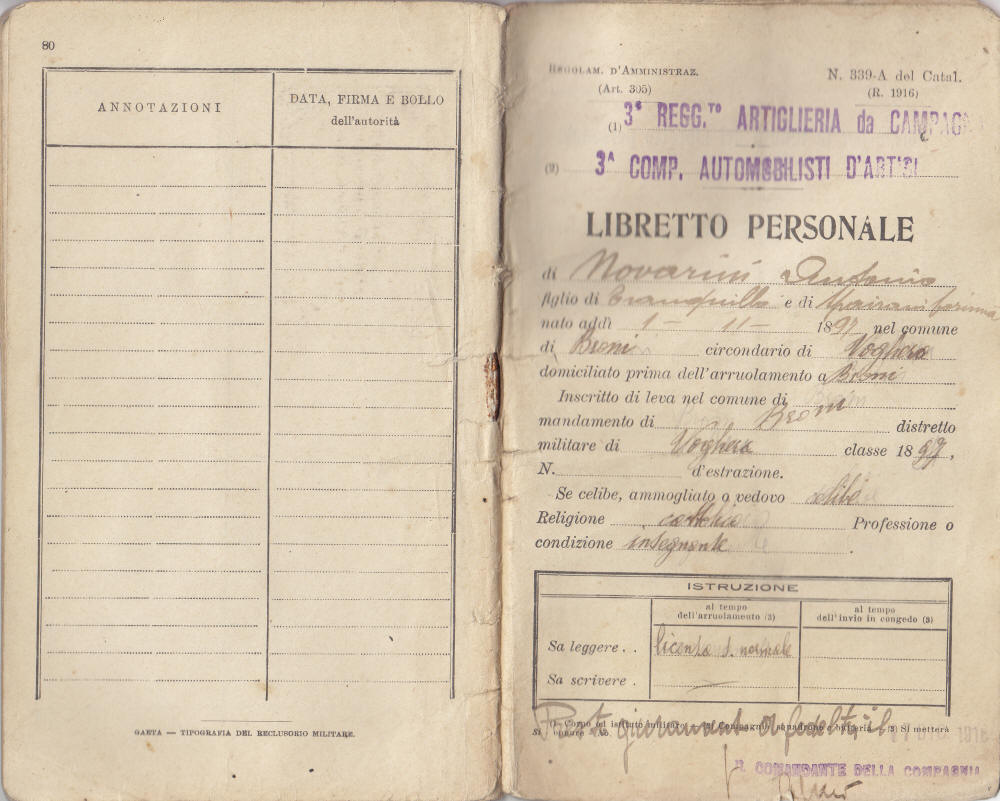 80
ANNOTAZIONI
DATA, FIRMA E BOLLO
dell'autorità
GAETA — TIPOGRAFIA DEL RECLUSORIO MILITARE.
REGOLAM. D'AMMINISTRAZ.
(Art. 305)
N. 339-A del Catal.
(R. 1916)
(1) 3° REGG.TO ARTIGLIERIA da CAMPAGNA
(2) 3A COMP. AUTOMOBILISTI D'ARTIGl
LIBRETTO PERSONALE
di Novarini Antonio
figlio di Tranquillo e di
nato addì 1 - 11 - 1897 nel comune
di Broni circondario di Voghera
domiciliato prima dell'arruolamento a Broni
Inscritto di leva nel comune di Broni
mandamento di Broni distretto
militare di Voghera classe 1897,
N. d'estrazione.
Se celibe, ammogliato o vedovo celibe
Religione cattolica Professione o
condizione insegnante.
ISTRUZIONE
al tempo
dell'arruolamento (3)
al tempo
dell'invio in congedo (3)
Sa leggere . . licenza s. normale
Sa scrivere .
(1) Corpo od istituto militare — (2) Compagnia, squadrone o batteria. (3) Si metterà
Si oppure No.
giuramento di fedeltà il DIC. 1916
IL COMANDANTE DELLA COMPAGNIA